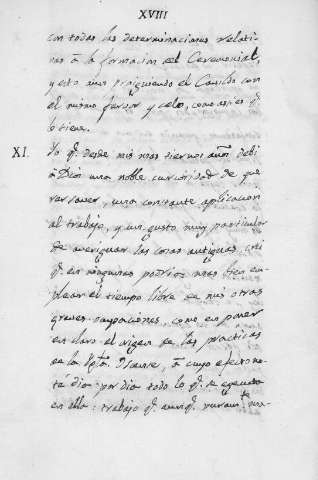 XVIII
con todas las determinaciones relati-
vas á la formacion del Ceremonial,
y esto mas prosiguiendo el Cavildo con
el mismo fervor y celo, como asi es q.e
lo tiene.
XI. Yo q.e desde mis mas tiernos años debi
á Dios una noble curiosidad de que
rer saver, una constante aplicacion
al trabajo, y un gusto muy particular
de averiguar las cosas antiguas, crei
q.e en ningunas podria mas bien em-
plear el tiempo libre de mis otras
graves ocupaciones, como en poner
en claro el origen de las practicas
en la Ygta. á cuyo efecto no-
tá dia por dia todo lo q.e se egecuta
en ella: trabajo q.e aunq.e